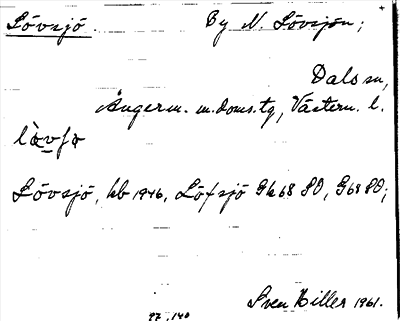 Lövsjö. By N. Lövsjön;
Dals sn,
Ångerm. m. doms.tg, Västern. l.
Lövsjö, kb 1946, Löfsjö Gk 68 SO, G 68 SO;
Sven Hiller 1961.
27, 140